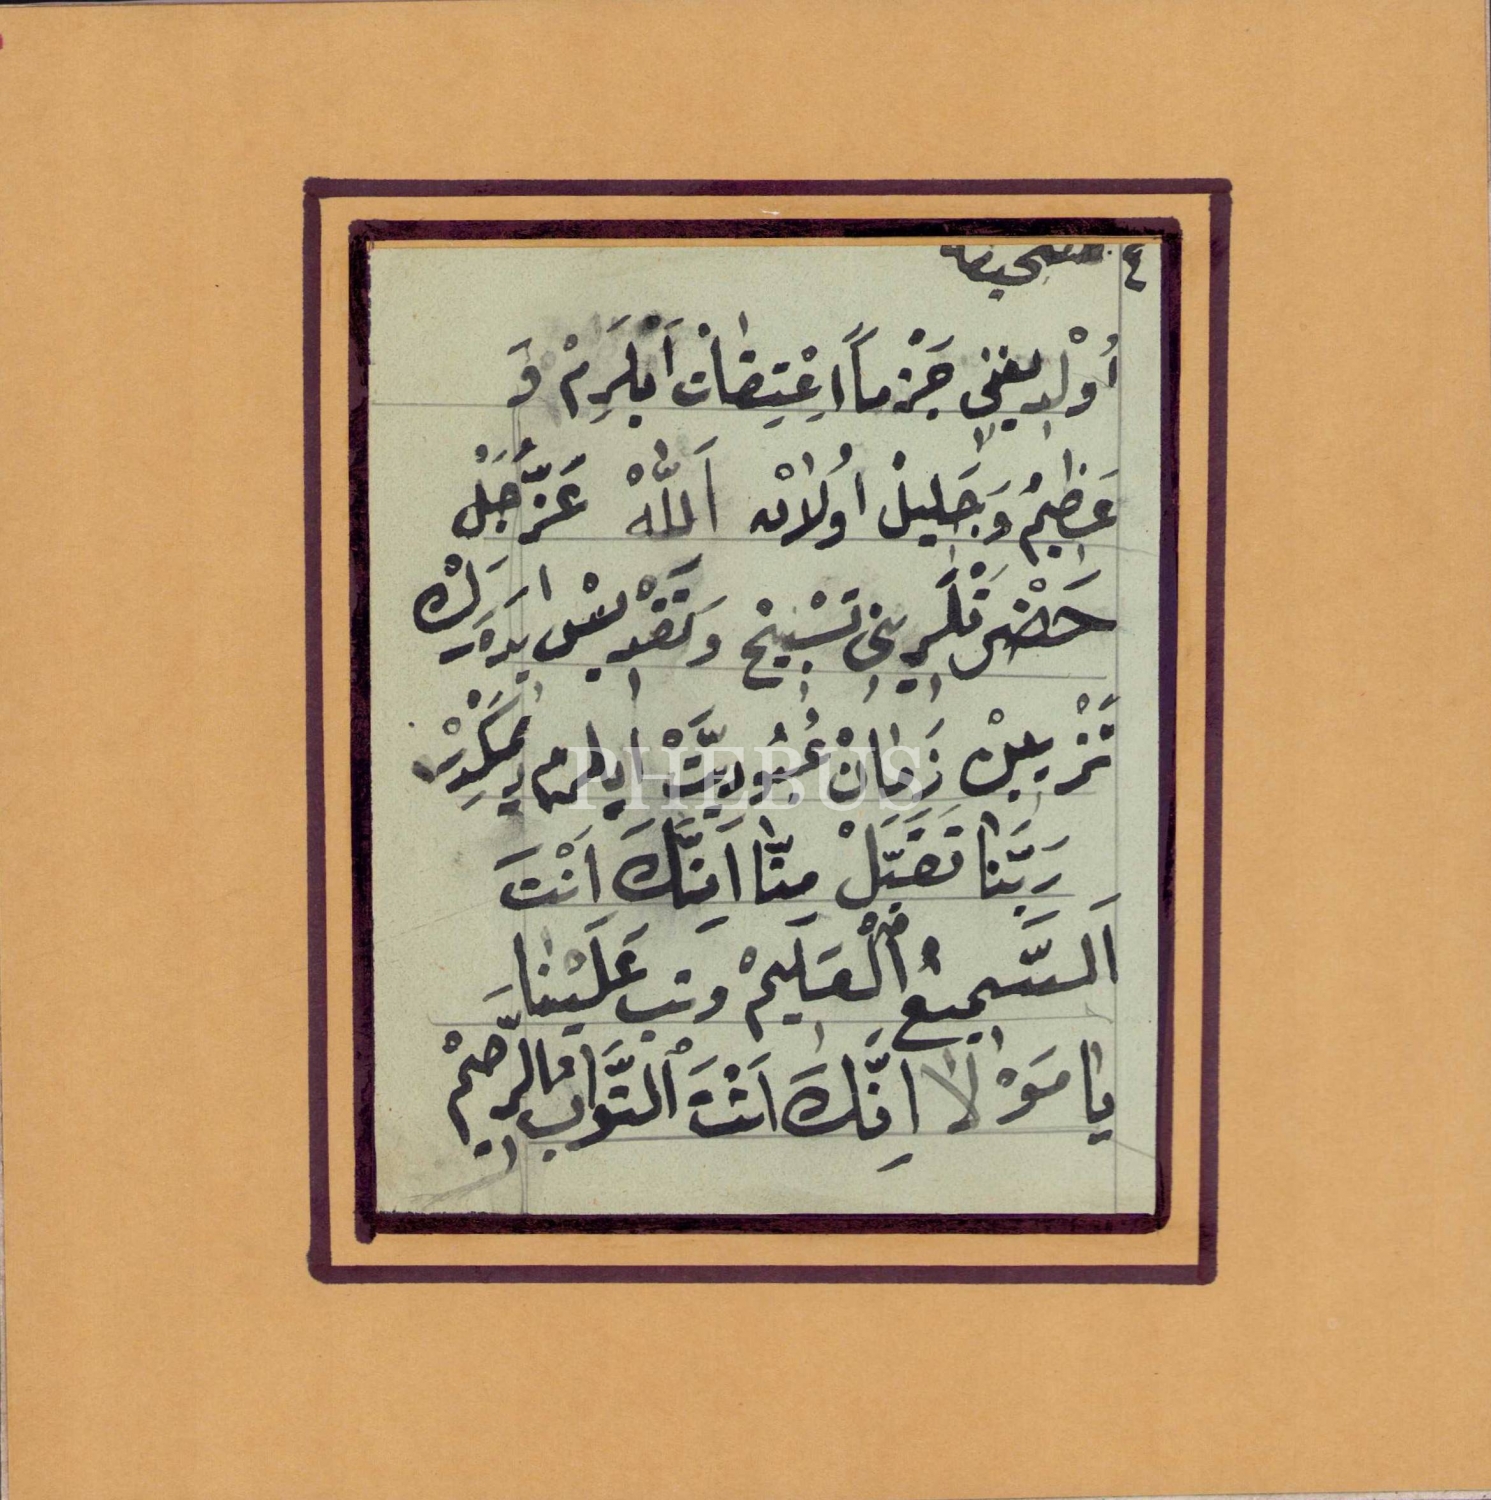 ٤ صحيفه
أُوْلديغني جَزْماً اِعْتِقادْ اَيْلَرِمْ وَ
عَظِيمْ وَجَلِيلْ اُولانْ اَللّٰهْ عَزَّجَلْ
حَضْرَتْلَرِينِي تَسْبِيحْ وَتَقْدِيسْ اِيدَرَكْ
عُبُودِيَّتْ
PHEBUS
رَبَّنَا تَقَبَّلْ مِنَّا اِنَّكَ اَنْتَ
اَلسَّمِيعُ الْعَلِيمْ وتب عَلَيْنا
يا مَوْلَا اِنَّكَ اَنْتَ الْتَّوابُ الرَّحِيمْ